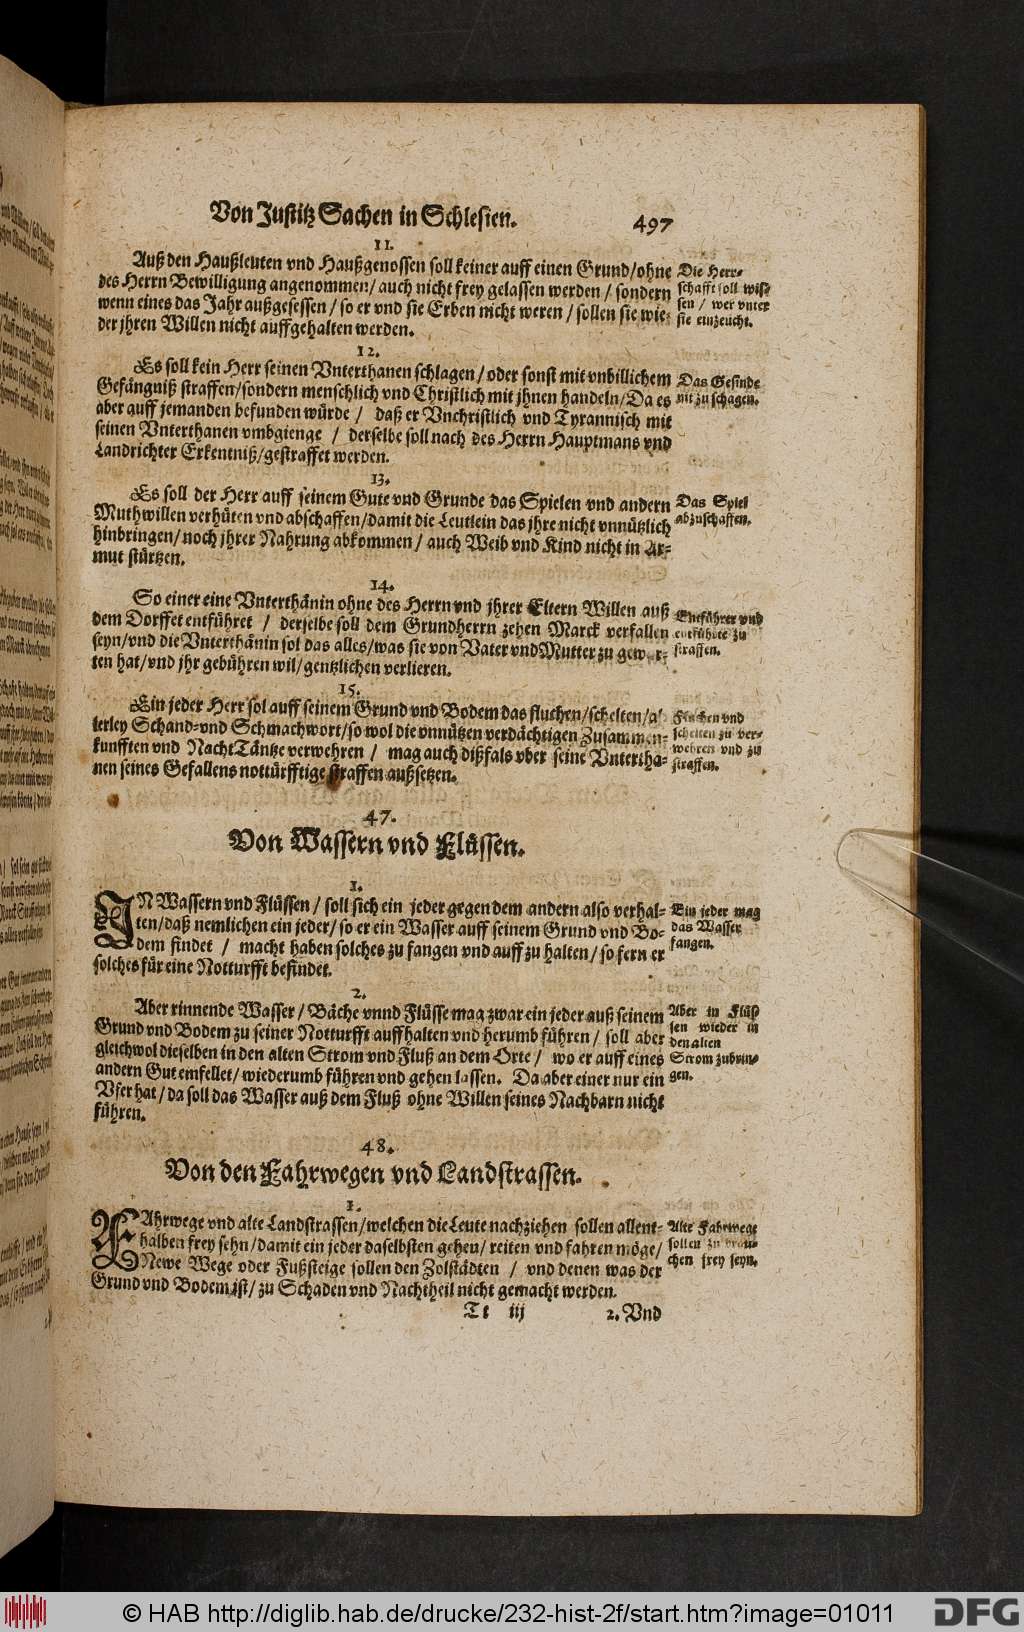 Von Justitz Sachen in Schlesien. 497
11.
Auß den Haußleuten vnd Haußgenossen soll keiner auff einen Grund/ohne
des Herrn Bewilligung angenommen/auch nicht frey gelassen werden/sondern
wenn eines das Jahr außgesessen/so er vnd sie Erben nicht weren/sollen sie wie-
der jhren Willen nicht auffgehalten werden.
Die Herr-
schafft soll wis-
sen/wer vnter
sie einzeucht.
12.
Es soll kein Herr seinen Vnterthanen schlagen/oder sonst mit vnbillichem
Gefängniß straffen/sondern menschlich vnd Christlich mit jhnen handeln/Da es
aber auff jemanden befunden würde/daß er Vnchristlich vnd Tyrannisch mit
seinen Vnterthanen vmbgienge/derselbe soll nach des Herrn Hauptmans vnd
Landrichter Erkentniß/gestraffet werden.
Das Gesinde
nit zu schagen.
13.
Es soll der Herr auff seinem Gute vnd Grunde das Spielen vnd andern
Muthwillen verhüten vnd abschaffen/damit die Leutlein das jhre nicht vnnützlich
hinbringen/noch jhrer Nahrung abkommen/auch Weib vnd Kind nicht in Ar-
mut stürtzen.
Das Spiel
abzuschaffen.
14.
So einer eine Vnterthänin ohne des Herrn vnd jhrer Eltern Willen auß
dem Dorffet entführet/derselbe soll dem Grundherrn zehen Marck verfallen
seyn/vnd die Vnterthänin sol das alles/was sie von Vater vnd Mutter zu gewar-
ten hat/vnd jhr gebühren wil/gentzlichen verlieren.
Entführer vnd
entführte zu
straffen.
15.
Ein jeder Herr sol auff seinem Grund vnd Bodem das fluchen/schelten/al-
lerley Schand-vnd Schmachwort/so wol die vnnützen verdächtigen Zusammen-
kunfften vnd Nacht Täntze verwehren/mag auch dißfals vber seine Vntertha-
nen seines Gefallens notturfftige straffen außsetzen.
Fluchen vnd
schelten zu ver-
wehren vnd zu
straffen.
47.
Von Wassern vnd Flüssen.
1.
IN Wassern vnd Flüssen/soll sich ein jeder gegen dem andern also verhal-
ten/daß nemlichen ein jeder/so er ein Wasser auff seinem Grund vnd Bo-
dem findet/macht haben solches zu fangen vnd auff zu halten/so fern er
solches für eine Notturfft befindet.
Ein jeder mag
das Wasser
fangen.
2.
Aber rinnende Wasser/Bäche vnnd Flüsse mag zwar ein jeder auß seinem
Grund vnd Bodem zu seiner Notturfft auffhalten vnd herumb führen/soll aber
gleichwol dieselben in den alten Strom vnd Fluß an dem Orte/wo er auff eines
andern Gut emfellet/wiederumb führen vnd gehen lassen. Da aber einer nur ein
Vfer hat/da soll das Wasser auß dem Fluß ohne Willen seines Nachbarn nicht
führen.
Aber in Flüs-
sen wieder in
den alten
Strom zubrin-
gen.
48.
Von den Fahrwegen vnd Landstrassen.
1.
FAhrwege vnd alte Landstrassen/welchen die Leute nachziehen sollen allent-
halben frey sehn/damit ein jeder daselbsten gehen/reiten vnd fahren möge/
Newe Wege oder Fußsteige sollen den Zolstädten/vnd denen was der
Grund vnd Bodem ist/zu Schaden vnd Nachtheil nicht gemacht werden.
Alte Fahrwege
sollen zu brau-
chen frey seyn.
Tt iij 2. Vnd
© HAB http://diglib.hab.de/drucke/232-hist-2f/start.htm?image=01011
DFG